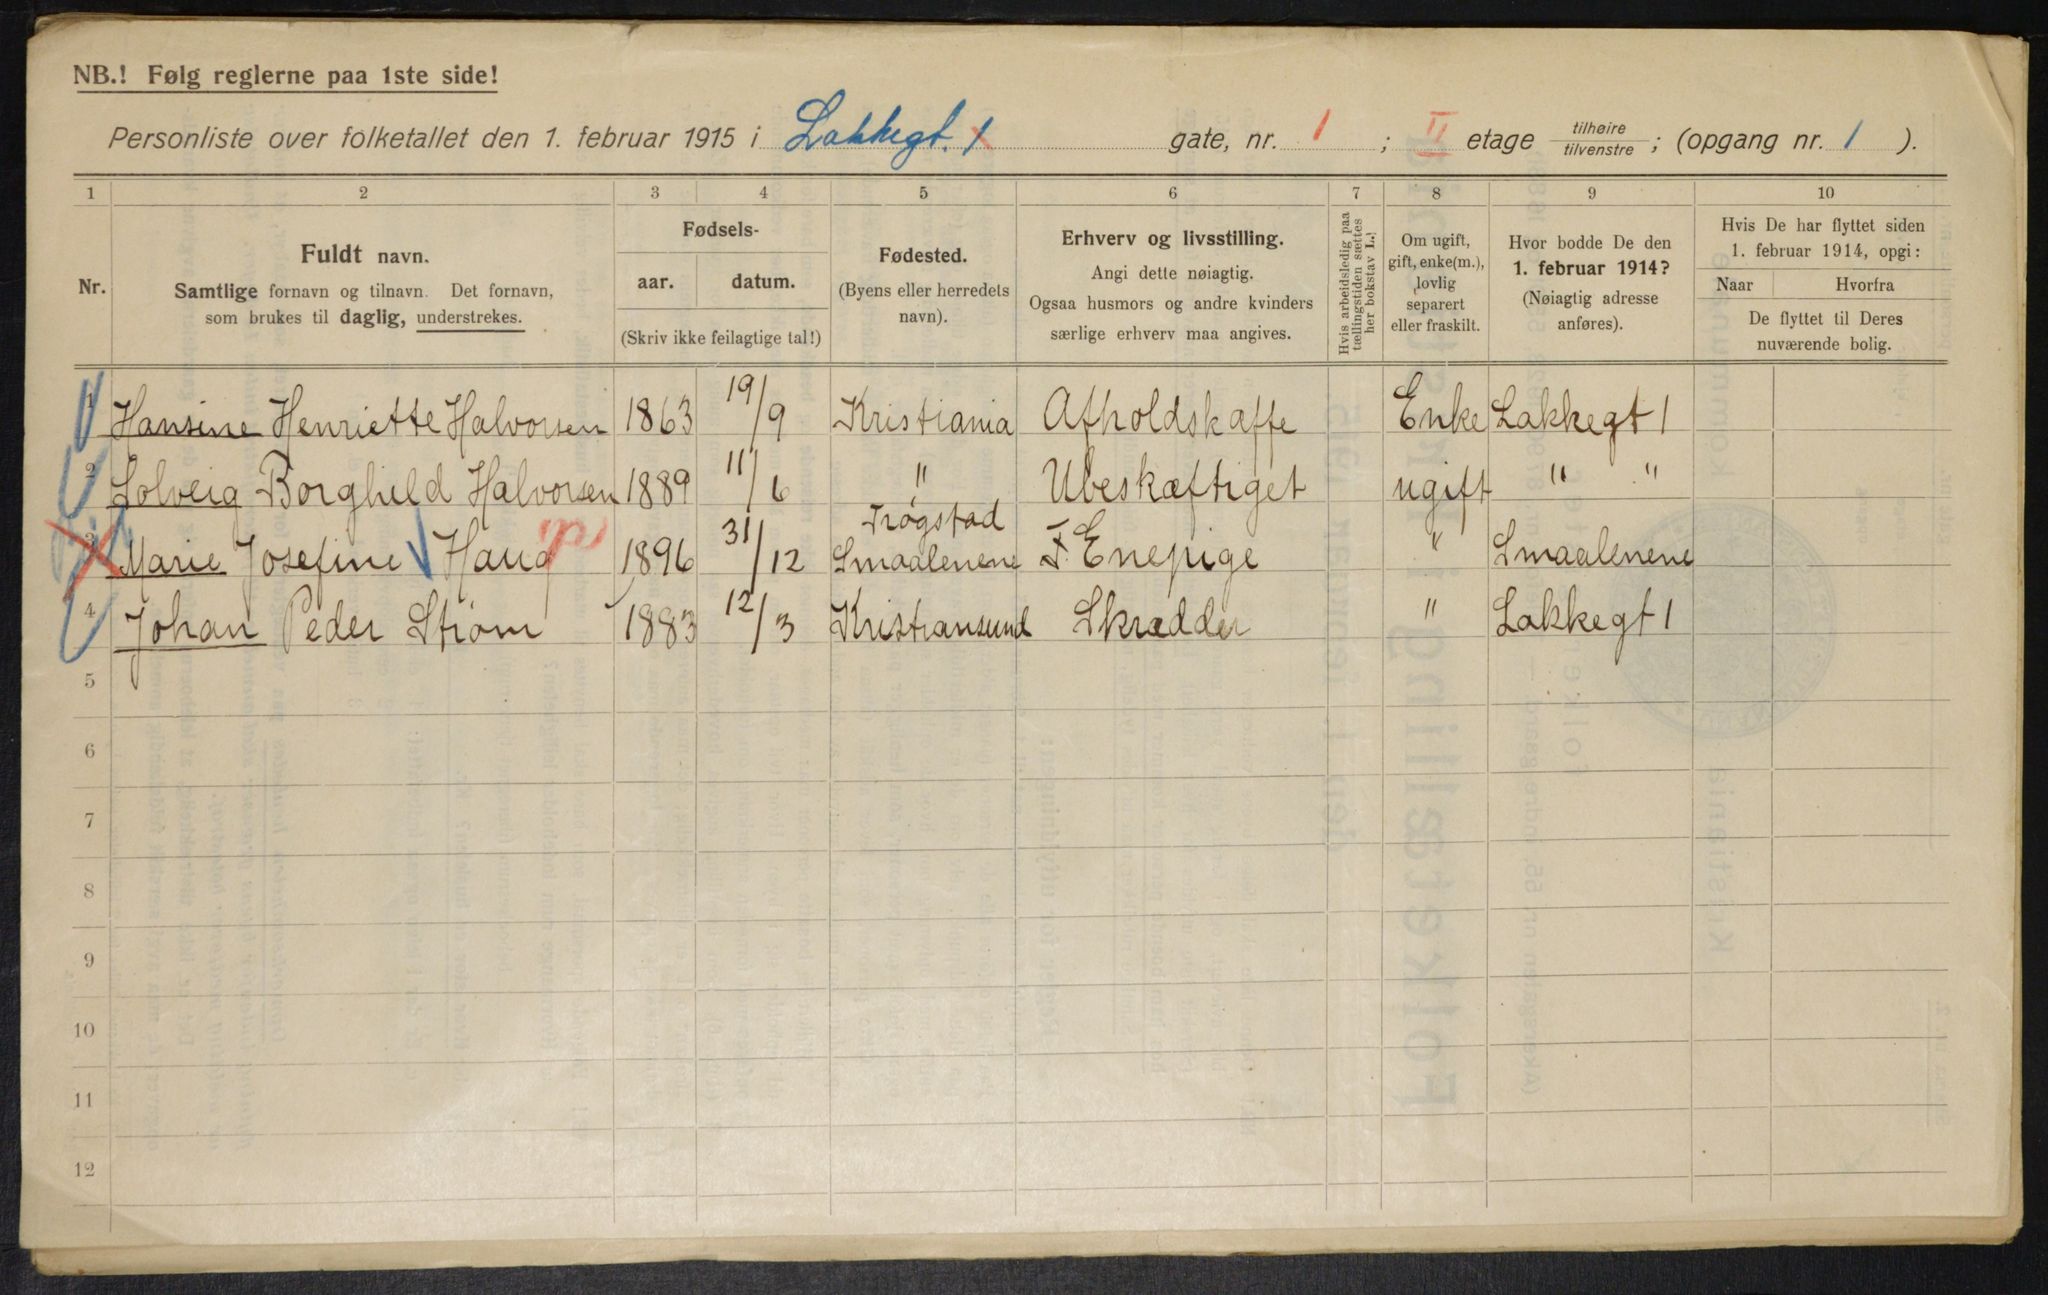 NB.! Følg reglerne paa 1ste side!
Personliste over folketallet den 1. februar 1915 i Lakkegt. 1 gate, nr. 1 ; II etage tilhøire tilvenstre ; (opgang nr. 1 ).
1 2 3 4 5 6 7 8 9 10
Nr.
Fuldt navn.
Samtlige fornavn og tilnavn. Det fornavn,
som brukes til daglig, understrekes.
Fødsels-
aar. datum.
(Skriv ikke feilagtige tal!)
Fødested.
(Byens eller herredets
navn).
Erhverv og livsstilling.
Angi dette nøiagtig.
Ogsaa husmors og andre kvinders
særlige erhverv maa angives.
Hvis arbeidsledig paa
tællingstiden sættes
her bokstav L.!
Om ugift,
gift, enke(m.),
lovlig
separert
eller fraskilt.
Hvor bodde De den
1. februar 1914?
(Nøiagtig adresse
anføres).
Hvis De har flyttet siden
1. februar 1914, opgi:
Naar Hvorfra
De flyttet til Deres
nuværende bolig.
1 Hansine Henriette Halvorsen 1863 19/9 Kristiania Afholdskaffe Enke Lakkegt 1
2 Solveig Borghild Halvorsen 1889 11/6 " Ubeskæftiget ugift " "
3 Marie Josefine Haug 1896 31/12 Trøgstad Smaalenene F. Enepige " Smaalenene
4 Johan Peder Strøm 1883 12/3 Kristiansund Skrædder " Lakkegt 1
5
6
7
8
9
10
11
12